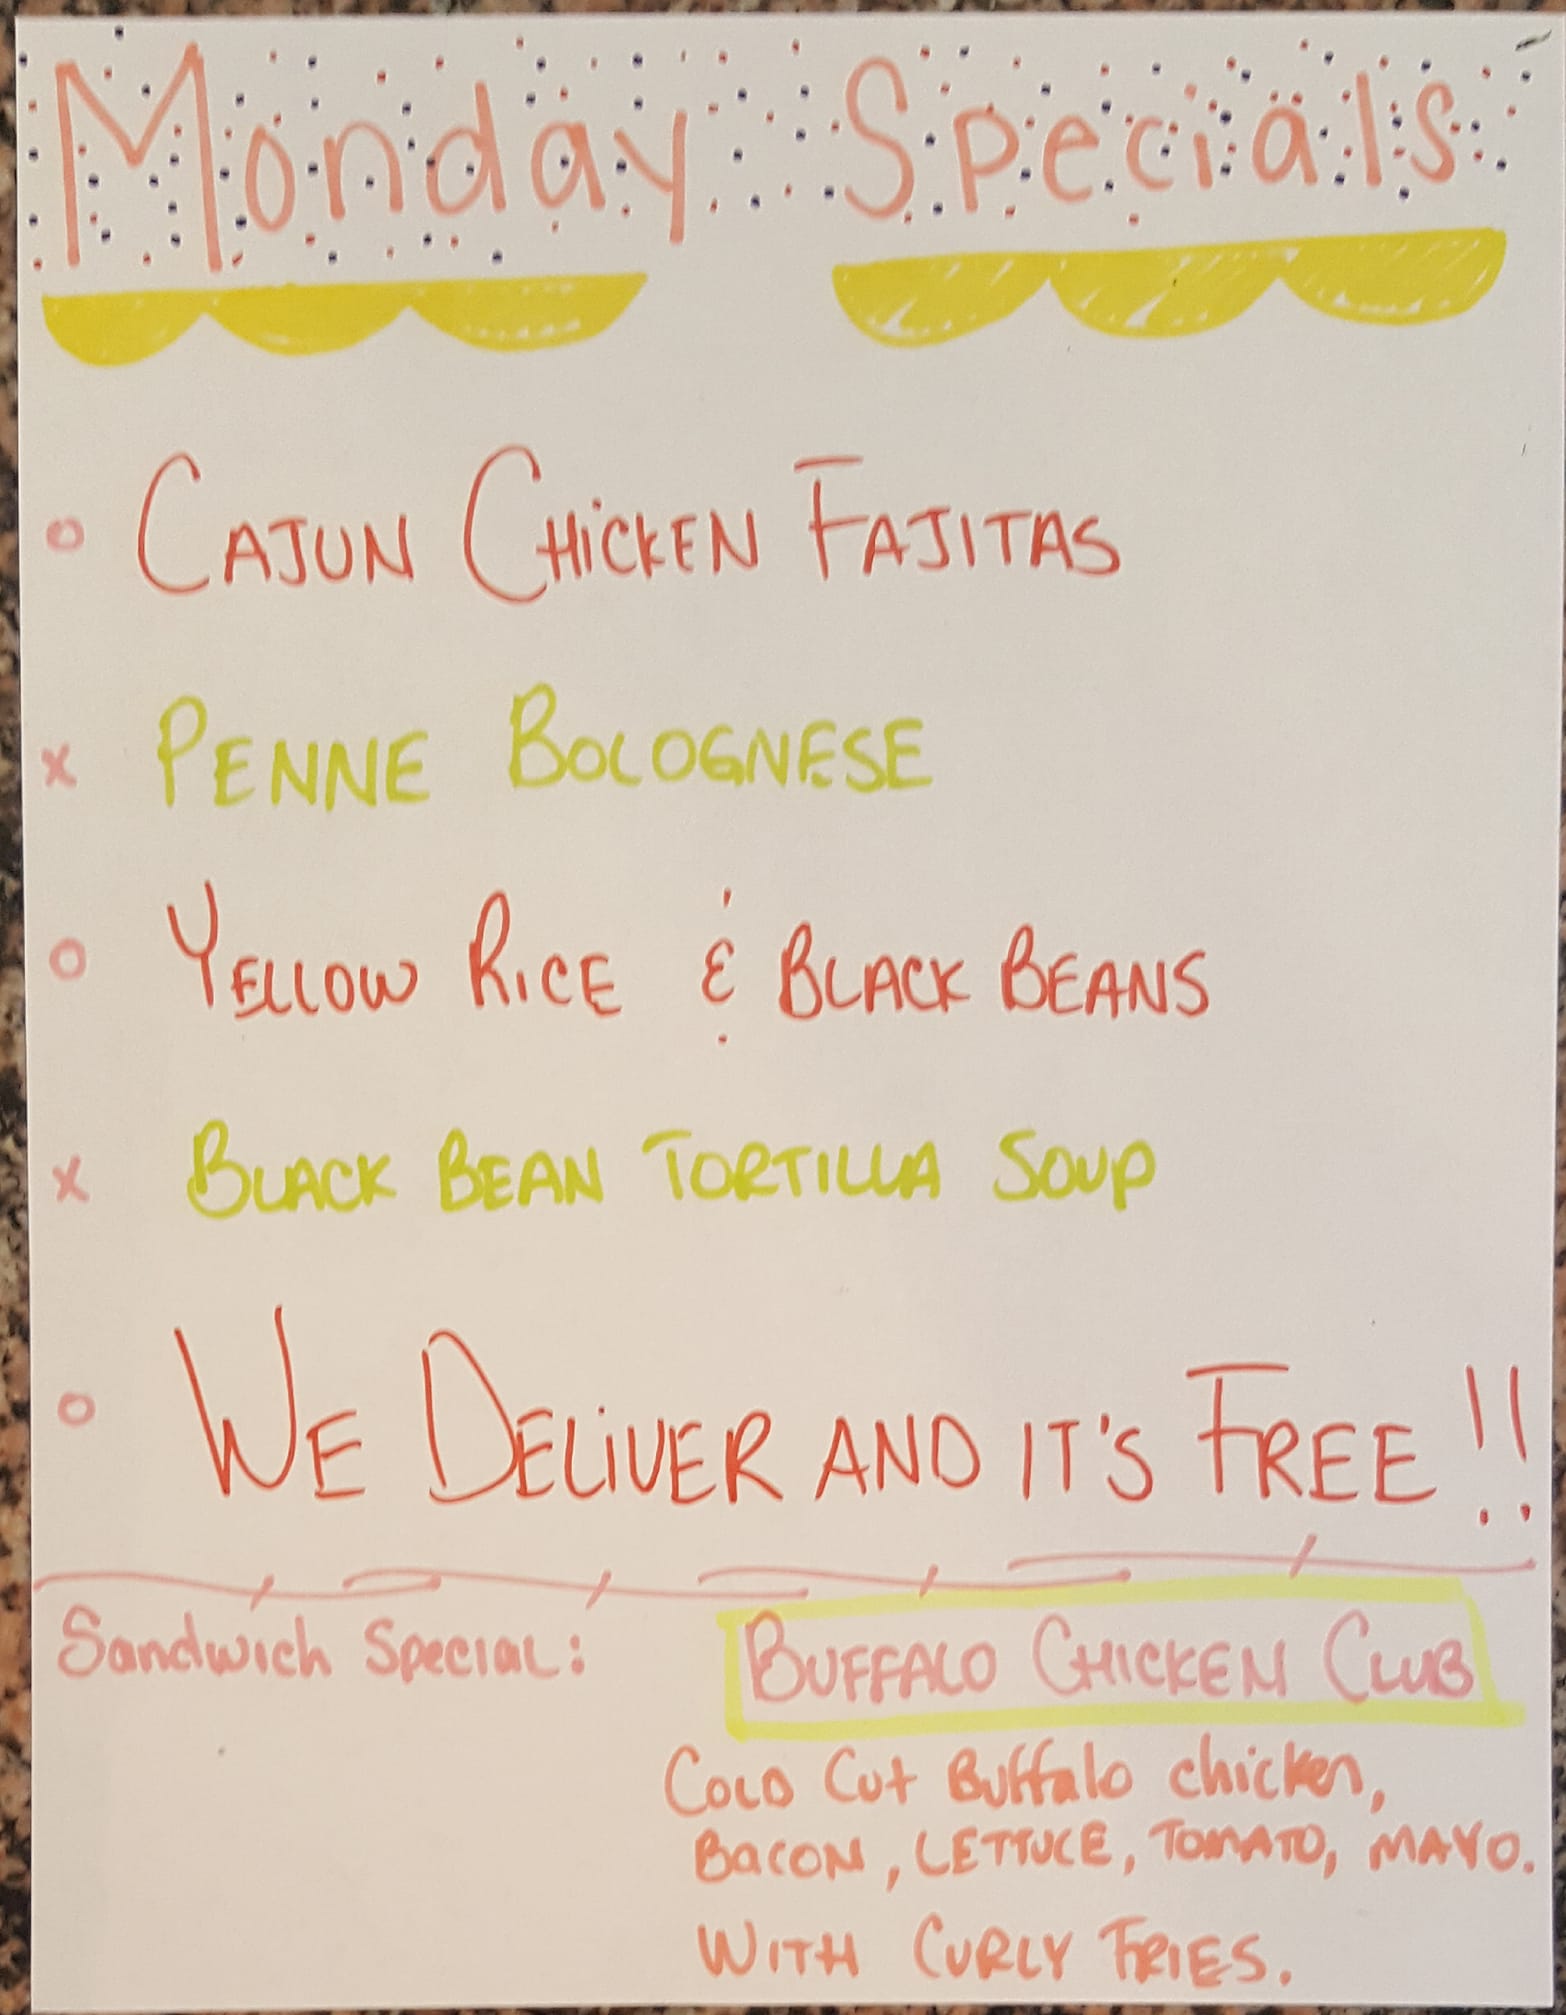 Monday Specials
o CAJUN CHiCKEN FAJITAS
x PENNE BOLOGNESE
o YELLOW RICE & BLACK BEANS
x BLACK BEAN TORTILLA SOUP
o WE DELiVER AND IT'S FREE!!
Sandwich Special: BUFFALO CHICKEN CLUB
COLD Cut Buffalo chicken,
BaCON, LETTUCE, TOMATO, MAYO.
WITH CURLY FRIES.